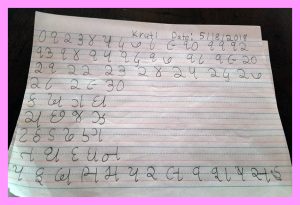 Kruti Date: 5/8/2019
૦ ૧ ૨ ૩ ૪ ૫ ૬ ૭ ૮ ૯ ૧૦ ૧૧ ૧૨
૧૩ ૧૪ ૧૫ ૧૬ ૧૭ ૧૮ ૧૯ ૨૦
૨૧ ૨૨ ૨૩ ૨૪ ૨૫ ૨૬ ૨૭
૨૮ ૨૯ ૩૦
ક ખ ગ ઘ
ચ છ જ ઝ
ટ ઠ ડ ઢ ણ
ત થ દ ધ ન
પ ફ બ ભ મ ય ર લ વ શ ષ સ હ